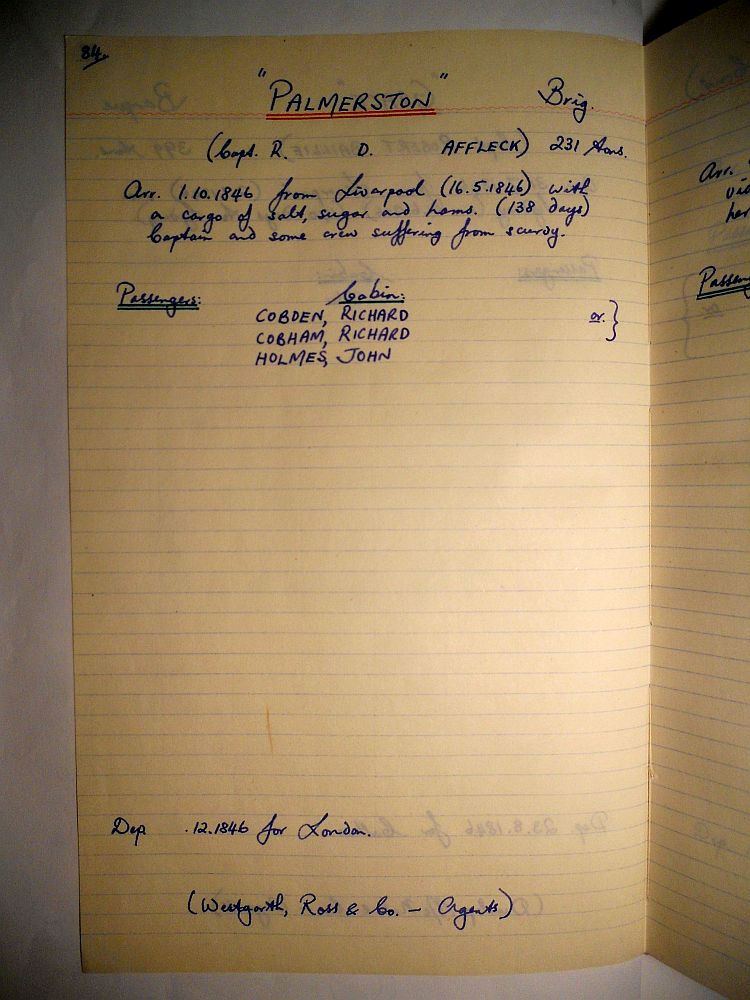 84.
"PALMERSTON" Brig.
(Capt. R. D. AFFLECK) 231 tons.
Arr. 1.10.1846 from Liverpool (16.5.1846) with
a cargo of salt, sugar and hams. (138 days)
Captain and some crew suffering from scurvy.
Passengers: Cabin:
COBDEN, RICHARD or. }
COBHAM, RICHARD
HOLMES, JOHN
Dep .12.1846 for London.
(Westgarth, Ross & Co. — Agents)
Arr.
via
her
Passen